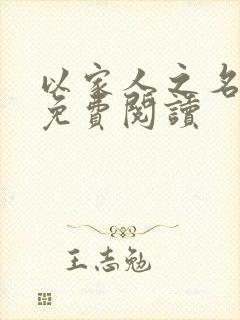 以家人之名
免費閱讀
王志勉